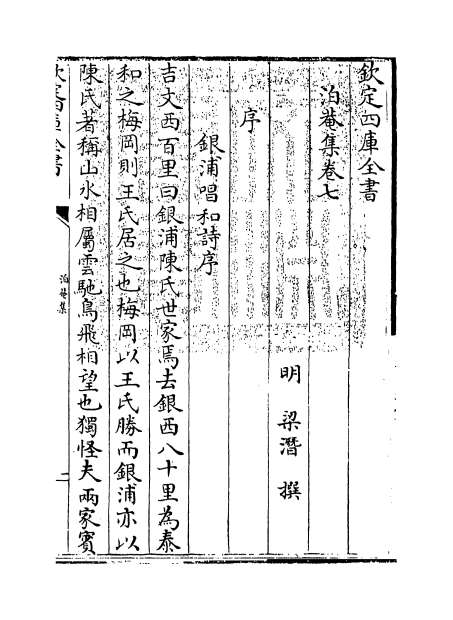 欽定四庫全書
泊菴集卷七
明 梁潛 撰
序
銀浦唱和詩序
吉文西百里曰銀浦陳氏世家焉去銀西八十里為泰
和之梅岡則王氏居之也梅岡以王氏勝而銀浦亦以
陳氏著稱山水相屬雲馳鳥飛相望也獨怪夫兩家賓
泊菴集